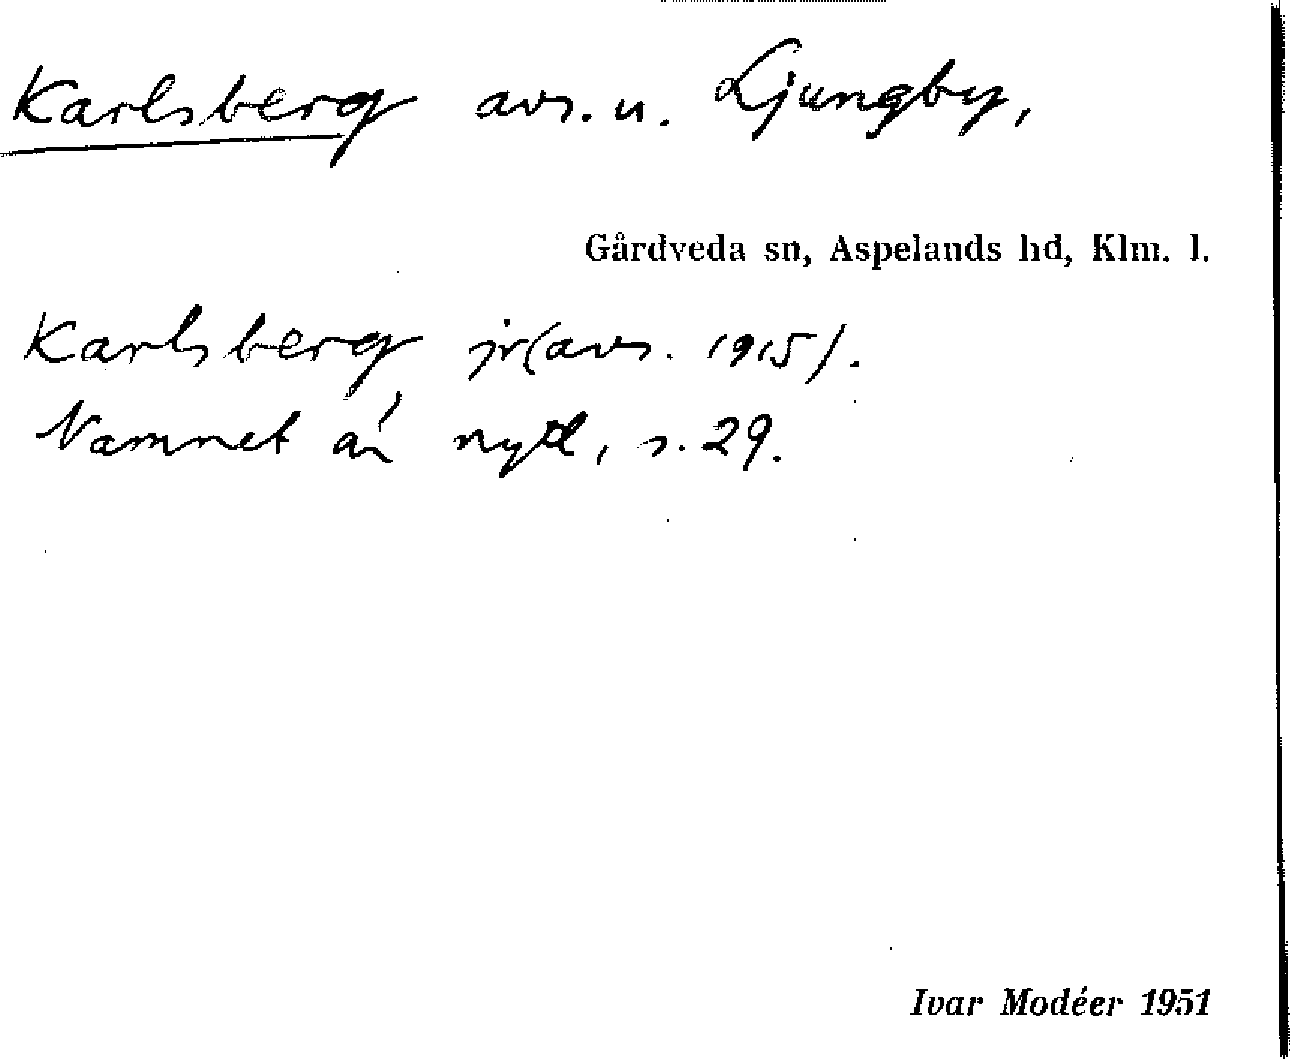 Karlsberg avs. u. Ljungby,
Gårdveda sn, Aspelands hd, Klm. l.
Karlsberg jr (avs. 1915).
Namnet är nytt, s. 29.
Ivar Modéer 1951